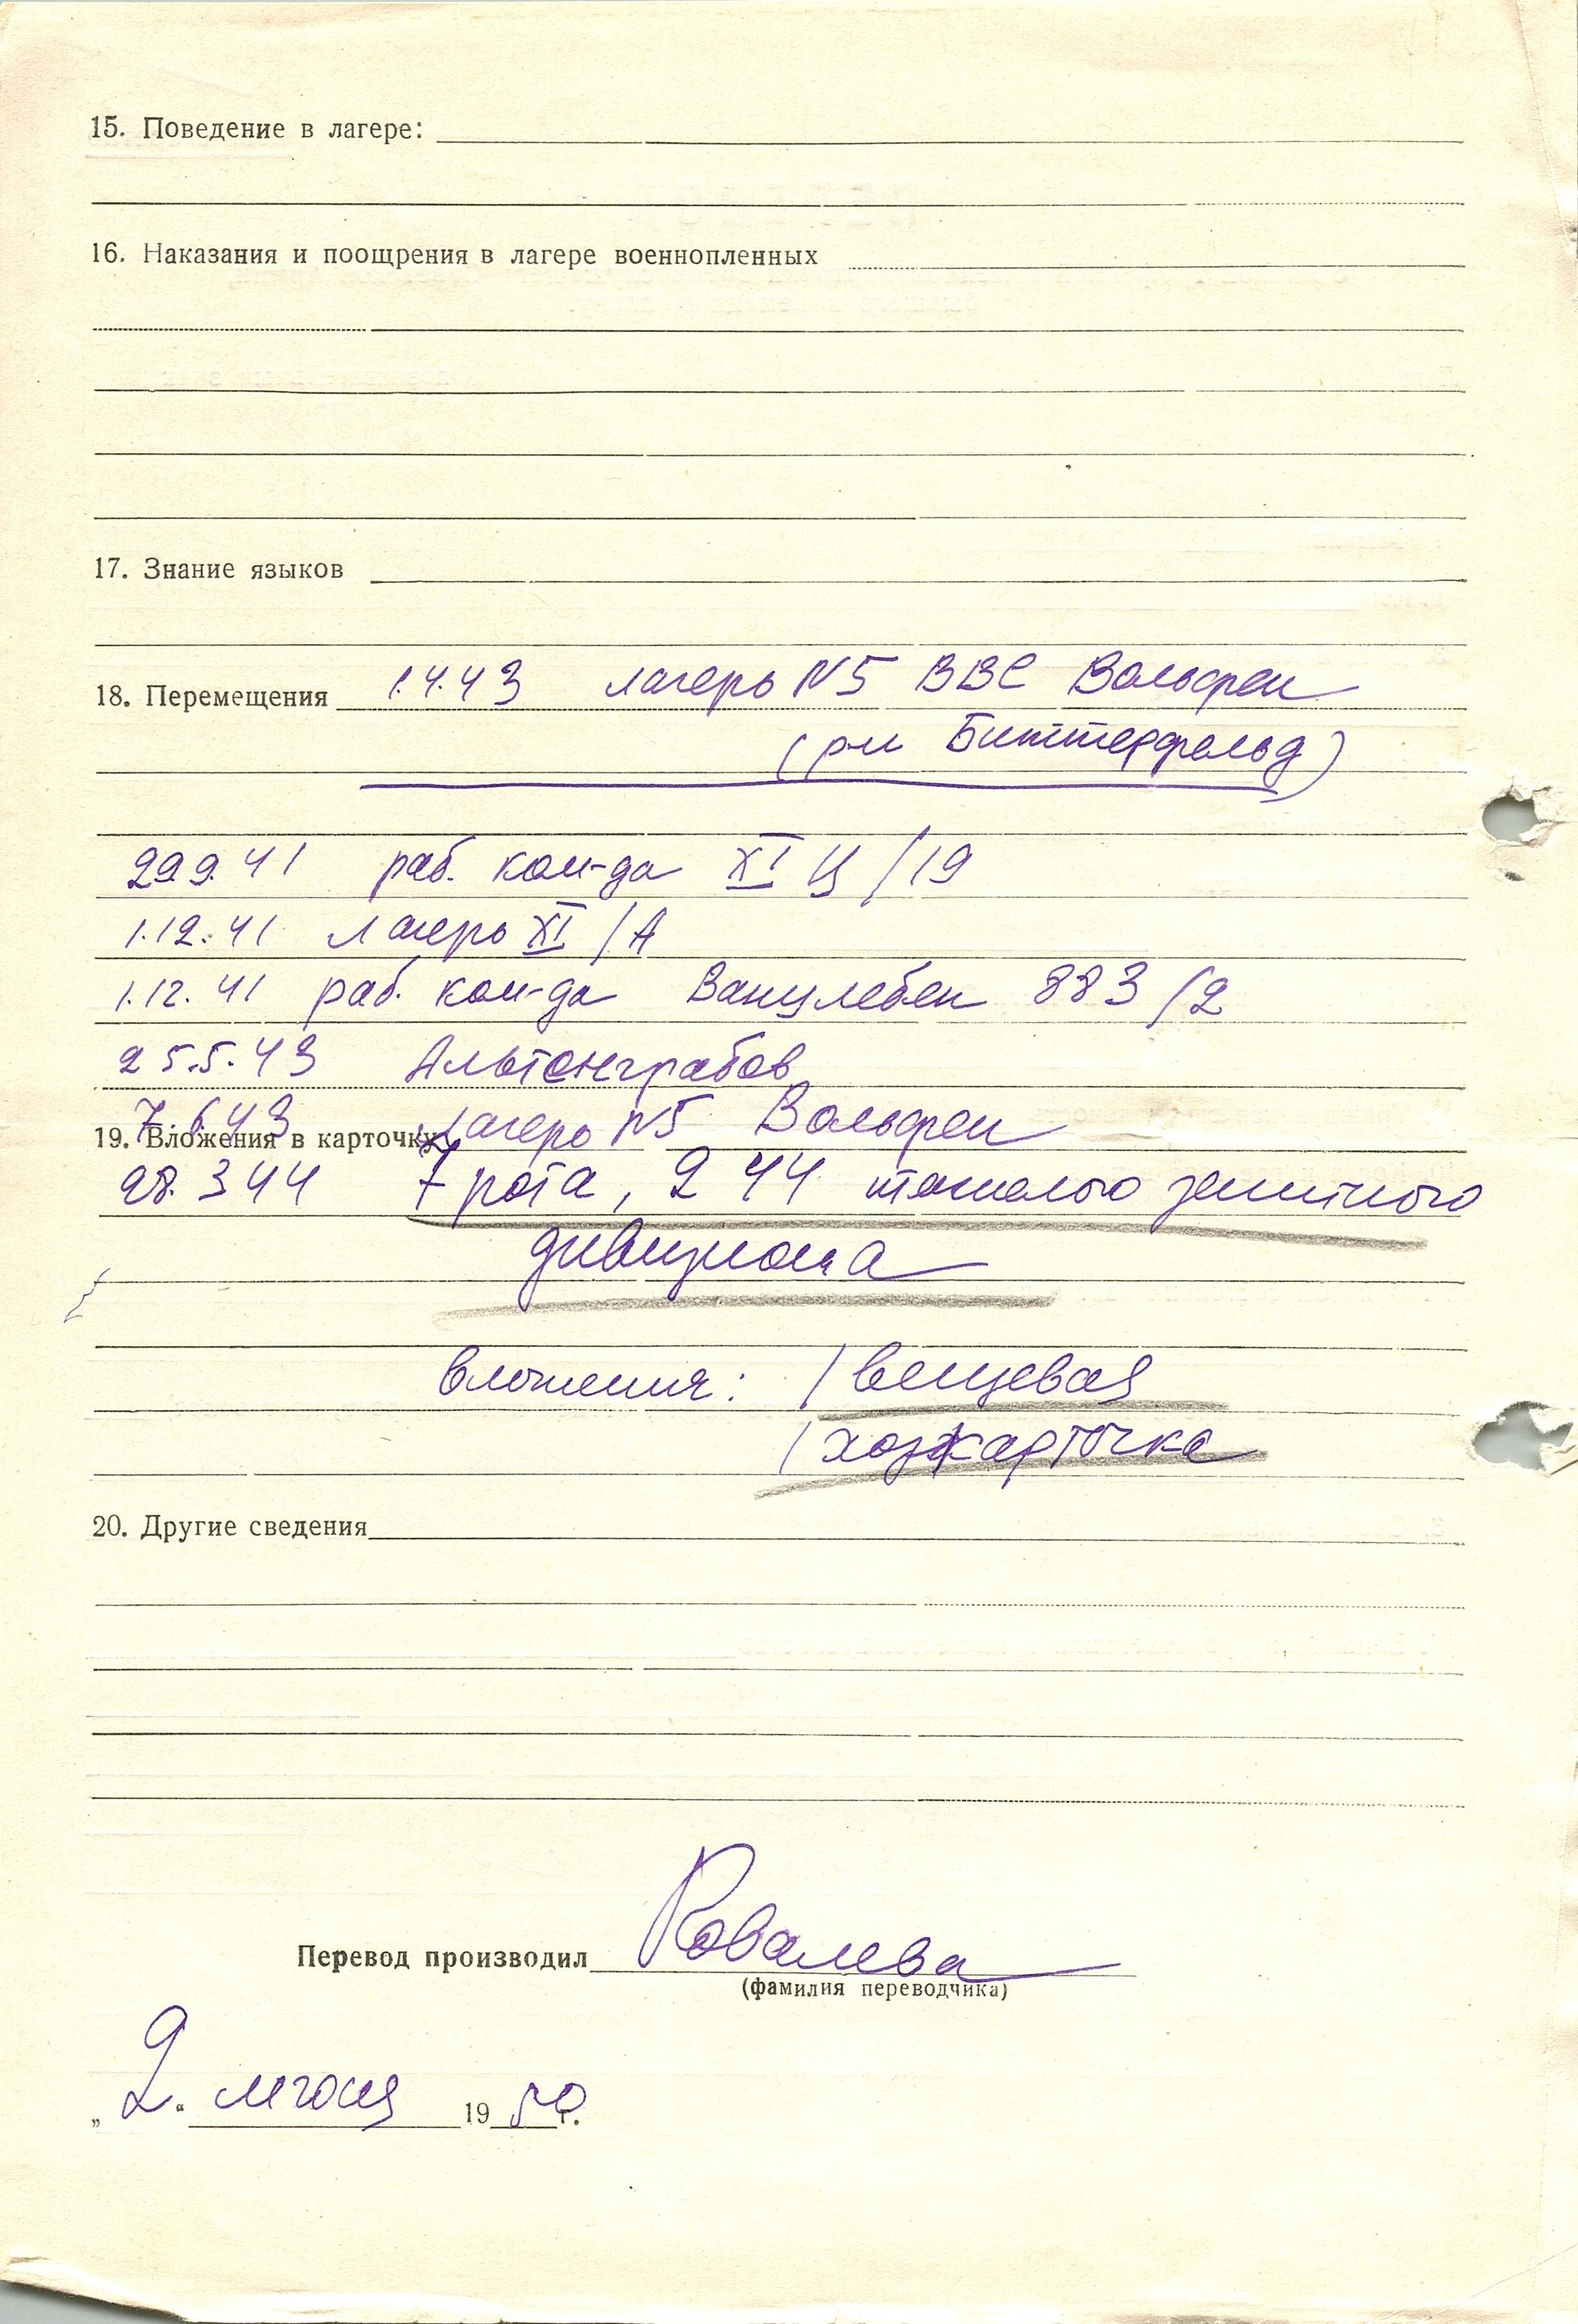 15. Поведение в лагере:
16. Наказания и поощрения в лагере военнопленных
17. Знание языков
18. Перемещения 1.4.43 лагерь N5 ВВС Вольфен
(рн Биттерфельд)
29.9.41 раб. ком-да XI Ц/19
1.12.41 лагерь XI/А
1.12.41 раб. ком-да Ванцлебен 883/2
25.5.43 Альтенграбов
7.6.43 лагерь N5 Вольфен
19. Вложения в карточку
28.3 44 7 рота, 244 тяжелого зенитного
дивизиона
вложения: 1 вещевая
1 хозкарточка
20. Другие сведения
Перевод производил Ковалева
(фамилия переводчика)
„2“ июня 1950 г.